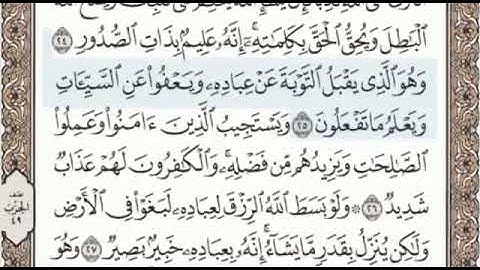 ٱلْبَٰطِلَ وَيُحِقُّ ٱلْحَقَّ بِكَلِمَٰتِهِۦٓ ۚ إِنَّهُۥ عَلِيمٌۢ بِذَاتِ ٱلصُّدُورِ ٢٤
وَهُوَ ٱلَّذِى يَقْبَلُ ٱلتَّوْبَةَ عَنْ عِبَادِهِۦ وَيَعْفُوا۟ عَنِ ٱلسَّيِّـَٔاتِ
وَيَعْلَمُ مَا تَفْعَلُونَ ٢٥ وَيَسْتَجِيبُ ٱلَّذِينَ ءَامَنُوا۟ وَعَمِلُوا۟
ٱلصَّٰلِحَٰتِ وَيَزِيدُهُم مِّن فَضْلِهِۦ ۚ وَٱلْكَٰفِرُونَ لَهُمْ عَذَابٌ
شَدِيدٌ ٢٦ ۞ وَلَوْ بَسَطَ ٱللَّهُ ٱلرِّزْقَ لِعِبَادِهِۦ لَبَغَوْا۟ فِى ٱلْأَرْضِ
وَلَٰكِن يُنَزِّلُ بِقَدَرٍ مَّا يَشَآءُ ۚ إِنَّهُۥ بِعِبَادِهِۦ خَبِيرٌۢ بَصِيرٌ ٢٧ وَهُوَ
نصف
الحزب
٤٩